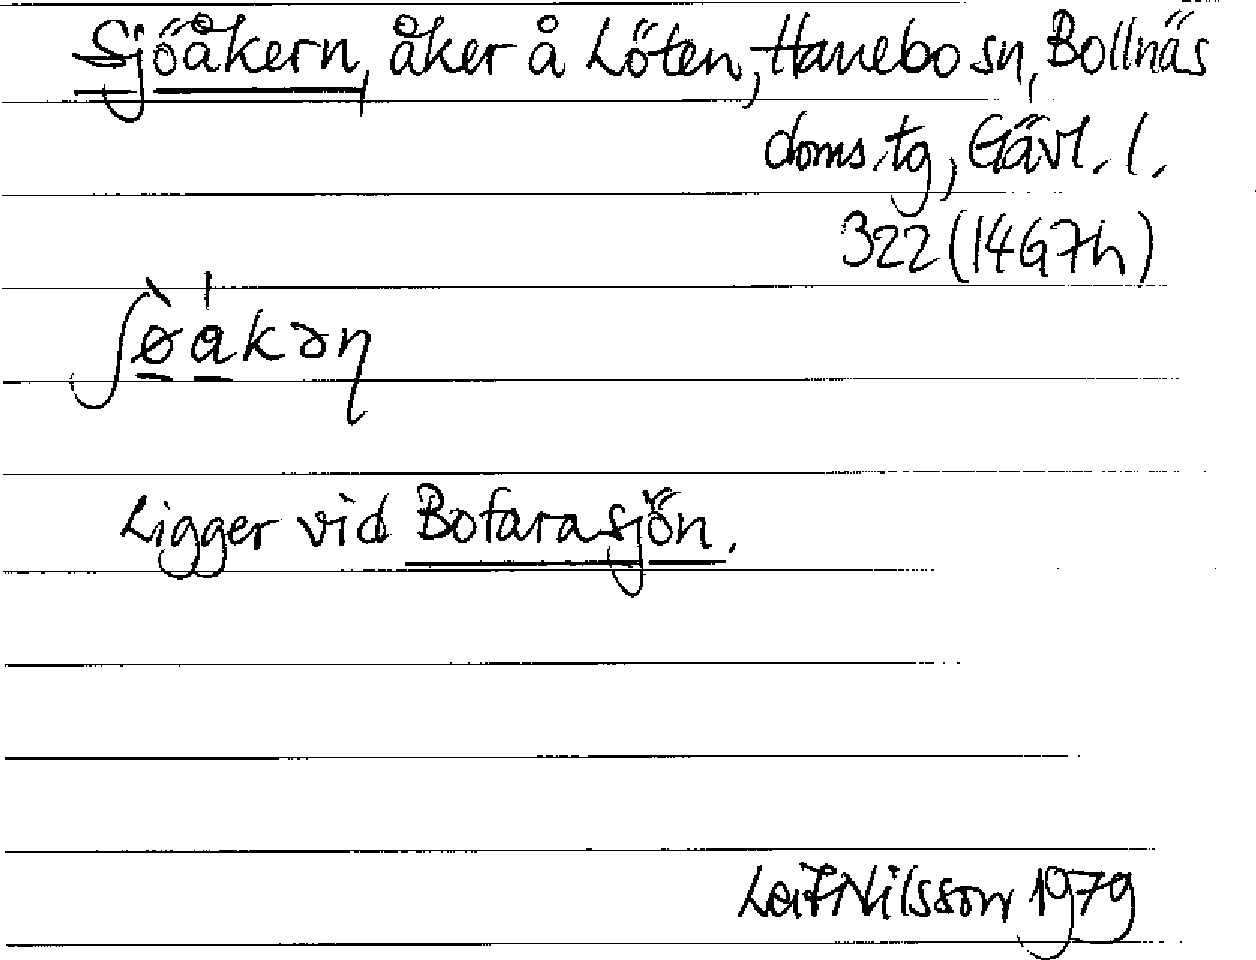 Sjöåkern, åker å Löten, Hanebo sn, Bollnäs
doms.tg, Gävl. l.
322 (14G7h)
ʃø̀a̍kəɳ
Ligger vid Bofarasjön.
Leif Nilsson 1979